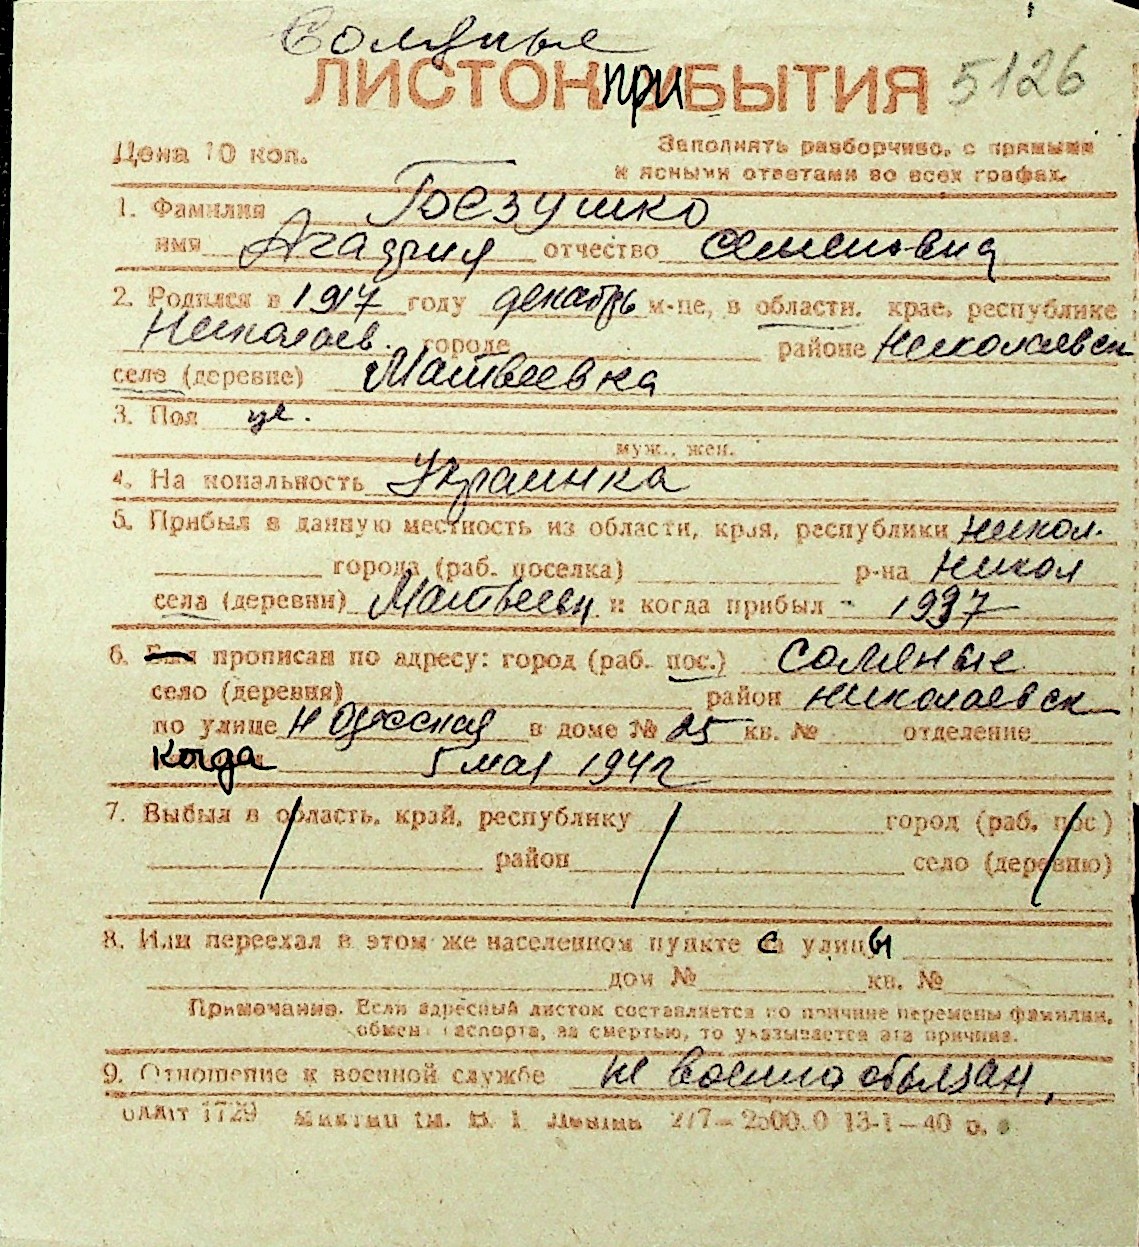 Соляные
ЛИСТОК ПРИБЫТИЯ 5126
Цена 10 коп. Заполнять разборчиво, с прямыми
и ясными ответами во всех графах.
1. Фамилия
имя отчество Семеновна
2. Родился в 1917 году декабрь м-це, в области, крае, республике
Николаев. городе районе Николаевск
селе (деревне) Матвеевка
3. Пол ж.
муж., жен.
4. Национальность Украинка
5. Прибыл в данную местность из области, края, республики Никол.
города (раб. поселка) р-на Никол
села (деревни) Матвеевки и когда прибыл - 1937
6. прописан по адресу: город (раб. пос.) Соляные
село (деревня) район Николаевск
по улице Н Одесская в доме № 25 кв. № отделение
когда 5 мая 1942
7. Выбыл в область, край, республику город (раб. пос)
район село (деревню)
8. Или переехал в этом же населенном пункте с улицы
дом № кв. №
Примечание. Если адресный листок составляется по причине перемены фамилии,
обмена паспорта, за смертью, то указывается эта причина.
9. Отношение к военной службе не военнообязан,
1729 277— 13-1—40 р.